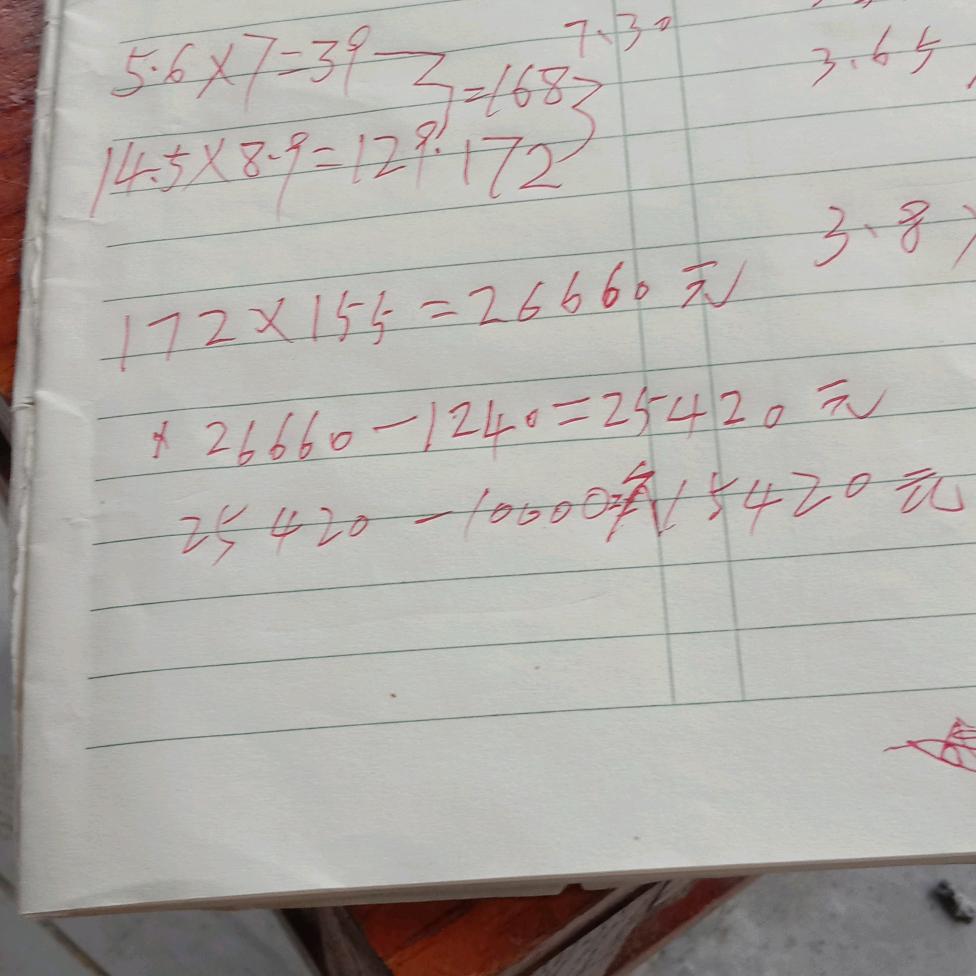 7.30
3.65
5.6×7=39
=168
14.5×8.9=129.
172
3.8
172×155=26660元
26660-1240=25420元
25420-10000 15420元